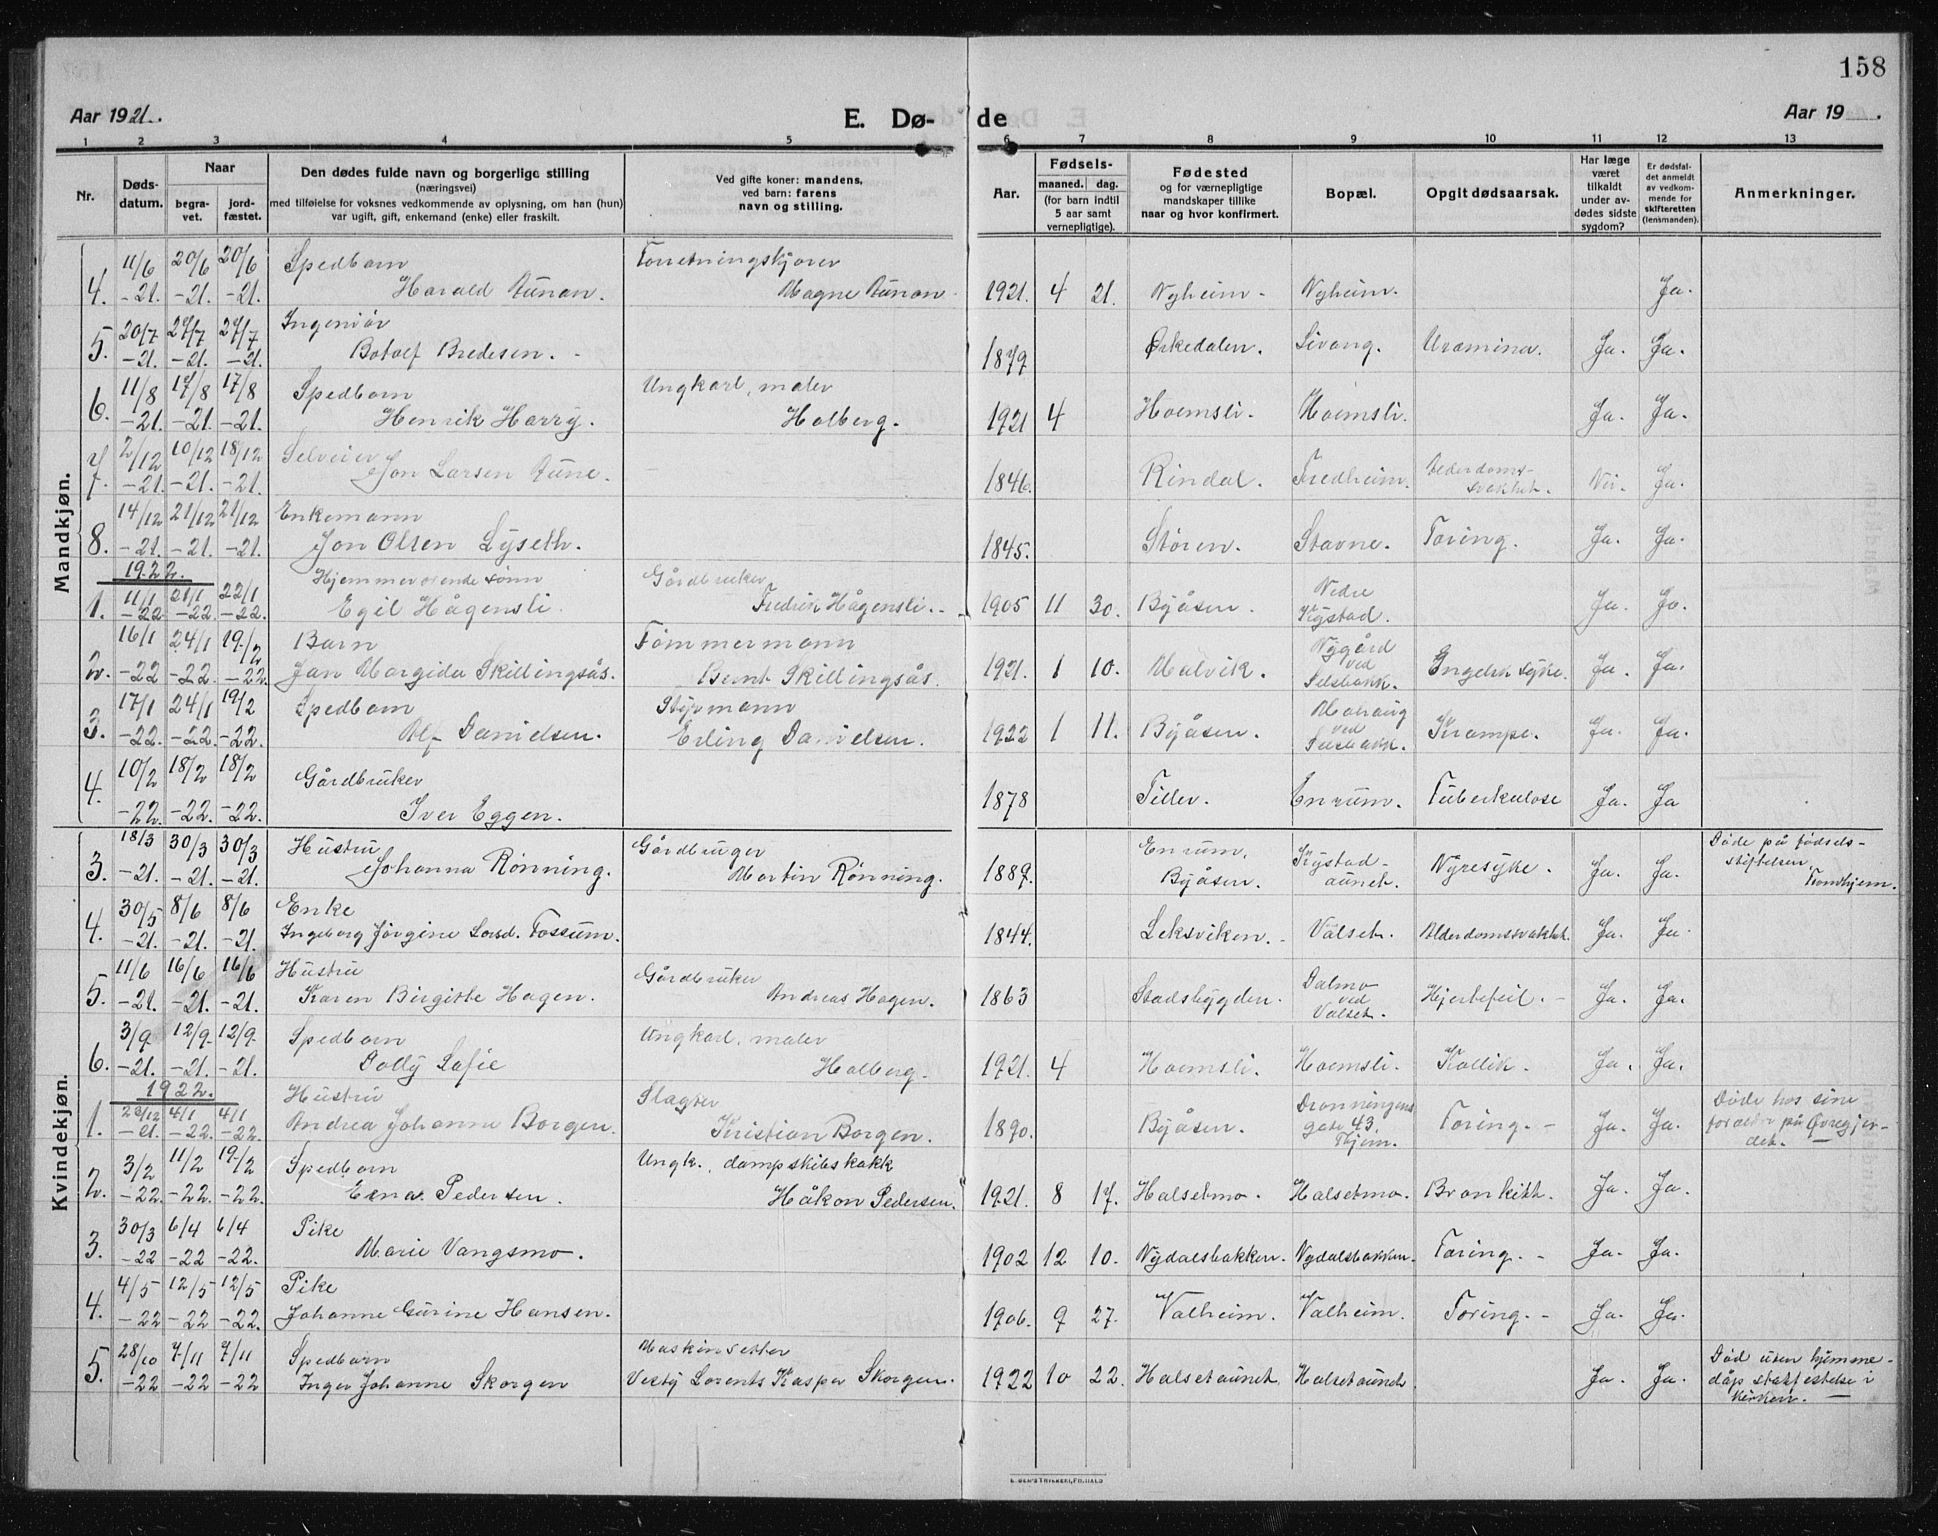 158
Aar 1921. E. Dø- de Aar 19 .
1 2 3 4 5 6 7 8 9 10 11 12 13
Nr. Døds-datum. Naar begra-vet. jord-fæstet. Den dødes fulde navn og borgerlige stilling (næringsvei) med tilføielse for voksnes vedkommende av oplysning, om han (hun) var ugift, gift, enkemand (enke) eller fraskilt. Ved gifte koner: mandens, ved barn: farens navn og stilling. Aar. Fødsels- maaned. dag. (for barn indtil 5 aar samt vernepligtige). Fødested og for værnepligtige mandskaper tillike naar og hvor konfirmert. Bopæl. Opgit dødsaarsak. Har læge været tilkaldt under av-dødes sidste sygdom? Er dødsfal-det anmeldt av vedkom-mende for skifteretten (lensmanden). Anmerkninger.
Mandkjøn.
4. 11/6 -21. 20/6 -21. 20/6 -21. Spedbarn Harald Aunan. Forretningskjører Magne Aunan 1921. 4 21. Nyheim. Nyheim. Ja.
5. 20/7 -21. 27/7 -21. 27/7 -21. Ingeniør Botolf Bredesen. 1879 Orkedalen. Sivang. Uræmina. Ja. Ja.
6. 11/8 -21. 17/8 -21. 17/8 -21. Spedbarn Henrik Harry. Ungkarl, maler Holberg. 1921 4 Hoemsli. Hoemsli. Ja. Ja.
7. 2/12 -21. 10/12 -21. 18/12 -21. Selveier Jon Larsen Aune. 1846. Rindal. Fredheim. Alderdoms-svakhet. Nei. Ja.
8. 14/12 -21. 21/12 -21. 21/12 -21. Enkemann Jon Olsen Lyseth. 1845. Støren. Stavne. Tæring. Ja. Ja.
1922.
1. 11/1 -22 21/1 -22. 22/1 -22. Hjemmeværende sønn Egil Hågensli. Gårdbruker Fredrik Hågensli. 1905 11 30. Byåsen. Nedre Kystad. Ja. Ja.
2. 16/1 -22. 24/1 -22. 19/2 -22. Barn Jan Margido Skillingsås. Tømmermann Bernt Skillingsås. 1921. 1 10. Malvik. Nygård ved Selsbakk. Engelsk syke. Ja. Ja.
3. 17/1 -22. 24/1 -22. 19/2 -22. Spedbarn Alf Danielsen. Styrmann Erling Danielsen. 1922 1 11. Byåsen. ved Selsbakk. Krampe. Ja. Ja.
4. 10/2 -22. 18/2 -22. 18/2 -22. Gårdbruker Iver Eggen. 1878 Tiller. Enrum. Tuberkulose Ja. Ja
Kvindekjøn.
3. 18/3 -21. 30/3 -21. 30/3 -21. Hustru Johanna Rønning. Gårdbruger Martin Rønning. 1889. Enrum, Byåsen. Kystad-aunet. Nyresyke. Ja. Ja. Døde på fødsels-stiftelsen, Trondhjem.
4. 30/5 -21. 8/6 -21. 8/6 -21. Enke Ingeborg Jørgine Larsd. Fossum. 1844. Leksviken. Valset. Alderdomssvakhet. Ja. Ja.
5. 11/6 -21. 16/6 -21. 16/6 -21. Hustru Karen Birgitte Hagen. Gårdbruker Andreas Hagen. 1863 Stadsbygden. Dalmo ved Valset. Hjertefeil. Ja. Ja.
6. 3/9 -21. 12/9 -21. 12/9 -21. Spedbarn Dolly Sofie Ungkarl, maler Holberg. 1921. 4 Hoemsli. Hoemsli. Kollik. Ja. Ja.
1922.
1. 23/12 -21. 4/1 -22. 4/1 -22. Hustru Andrea Johanne Borgen. Slagter Kristian Borgen. 1890. Byåsen. Dronningens gate 43. Thjem. Tæring. Ja. Ja. Døde hos sine forældre på Øvregjer-det.
2. 3/2 -22. 11/2 -22. 19/2 -22. Spedbarn Erna Pedersen. Ungk., dampskibskokk Håkon Pedersen. 1921. 8 17. Halsetmo. Halsetmo. Bronkitt. Ja. Ja.
3. 30/3 -22 6/4 -22 6/4 -22. Pike Marie Vangsmo. 1902 12 10. Nydalsbakken. Nydalsbakken. Tæring. Ja. Ja.
4. 4/5 -22 12/5 -22 12/5 -22. Pike Johanne Gurine Hansen. 1906. 9 27. Valheim. Valheim. Tæring. Ja. Ja.
5. 28/10 -22 7/11 -22 7/11 -22 Spedbarn Inger Johanne Skorgen Maskinsetter Lorents Kasper Skorgen. 1922 10 22. Halsetaunet. Halsetaunet Ja. Ja. Død uten hjemme-dåp stadfestelse i kirken.